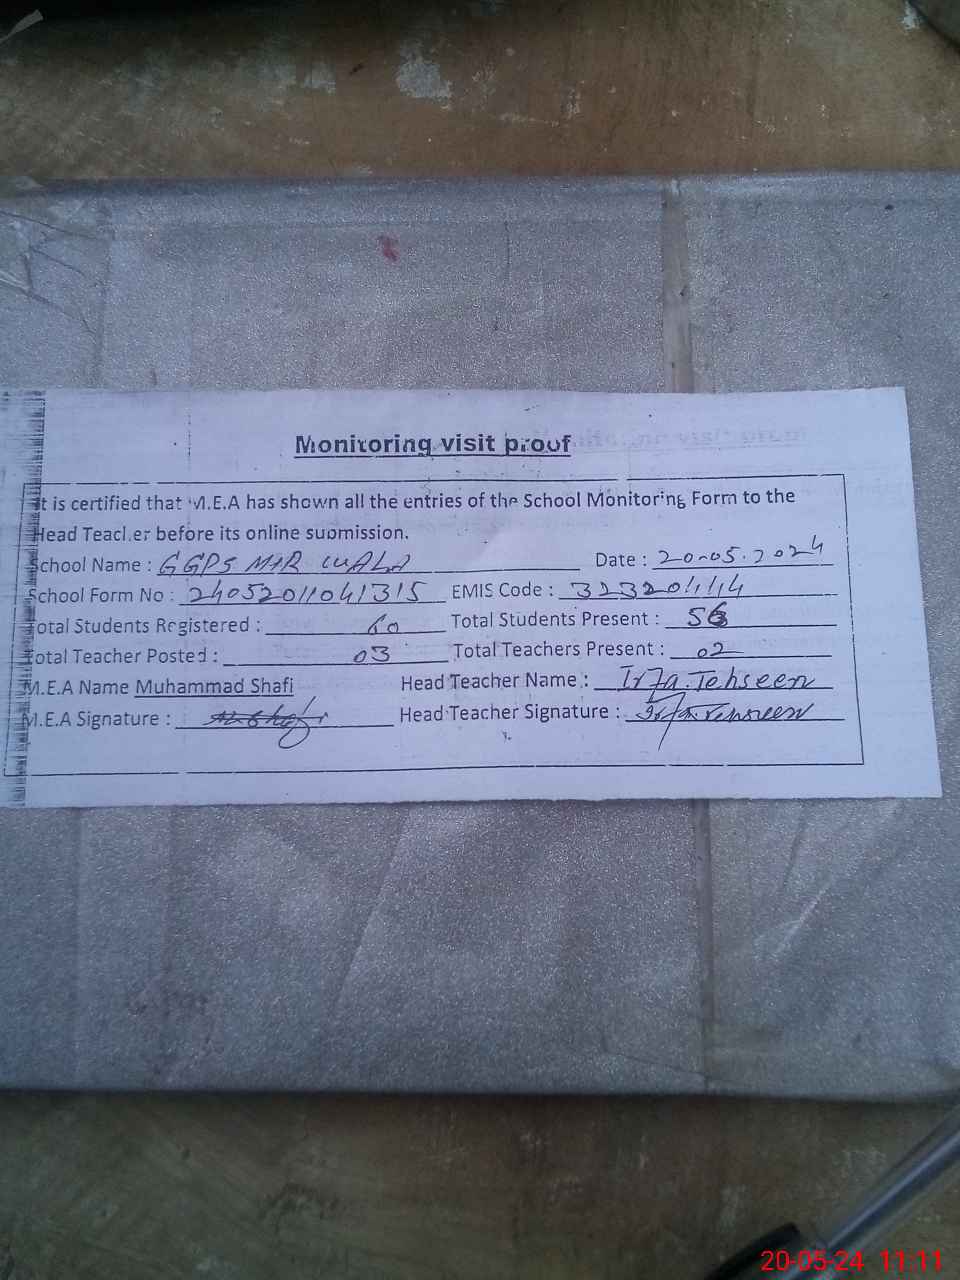 Monitoring visit proof
It is certified that M.E.A has shown all the entries of the School Monitoring Form to the
Head Teacher before its online submission.
School Name : GGPS MIR WALA Date : 20-05-2024
School Form No : 24052011041315 EMIS Code : 32320414
Total Students Registered : 60 Total Students Present : 56
Total Teacher Posted : 03 Total Teachers Present : 02
M.E.A Name Muhammad Shafi Head Teacher Name : Irfa.Tehseen
M.E.A Signature : Head Teacher Signature : Irfa.Tehseen
20-05-24 11:11